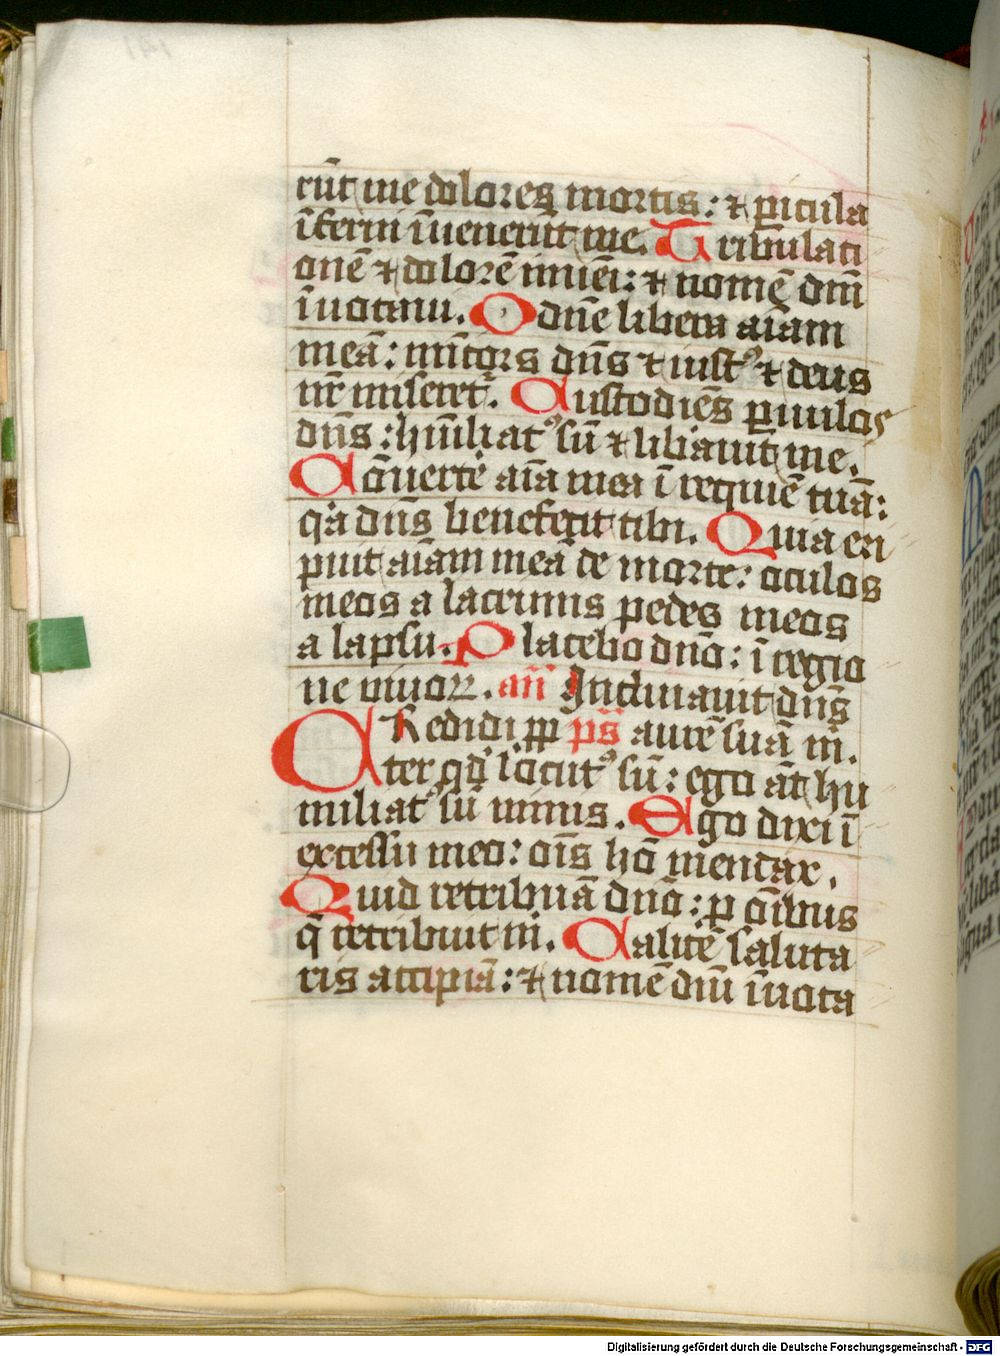 rūt me dolores mortis: ⁊ ꝑicula
īferni īuenerūt me. Tribulati
onē ⁊ dolorē inuēi: ⁊ nomē dn̄i
īuocaui. O dn̄e libera aīam
meā: mīcors dn̄s ⁊ iustꝰ ⁊ deus
nr̄ miseret᷑. Custodiēs ꝑuulos
dn̄s: hūiliatꝰ sū ⁊ lib̄auit me.
Cōuerte aīa mea ī requiē tuā:
qͣa dn̄s benefecit tibi. Quia eri
puit aīam meā de morte: oculos
meos a lacrimis pedes meos
a lapsu. Placebo dn̄o: ī regio
ne viuoꝝ. an̄ Inclinauit dn̄s
Credidi ꝓp ps̄ aurē suā m̄.
ter qd̓ locutꝰ sū: ego āt hu
miliatꝰ sū nimis. Ego dixi ī
excessu meo: oīs hō mendax.
Quid retribuā dn̄o: ꝓ oībus
q̄ retribuit m̄. Calicē saluta
ris accipiā: ⁊ nomē dn̄i īuoca
Digitalisierung gefördert durch die Deutsche Forschungsgemeinschaft - DFG